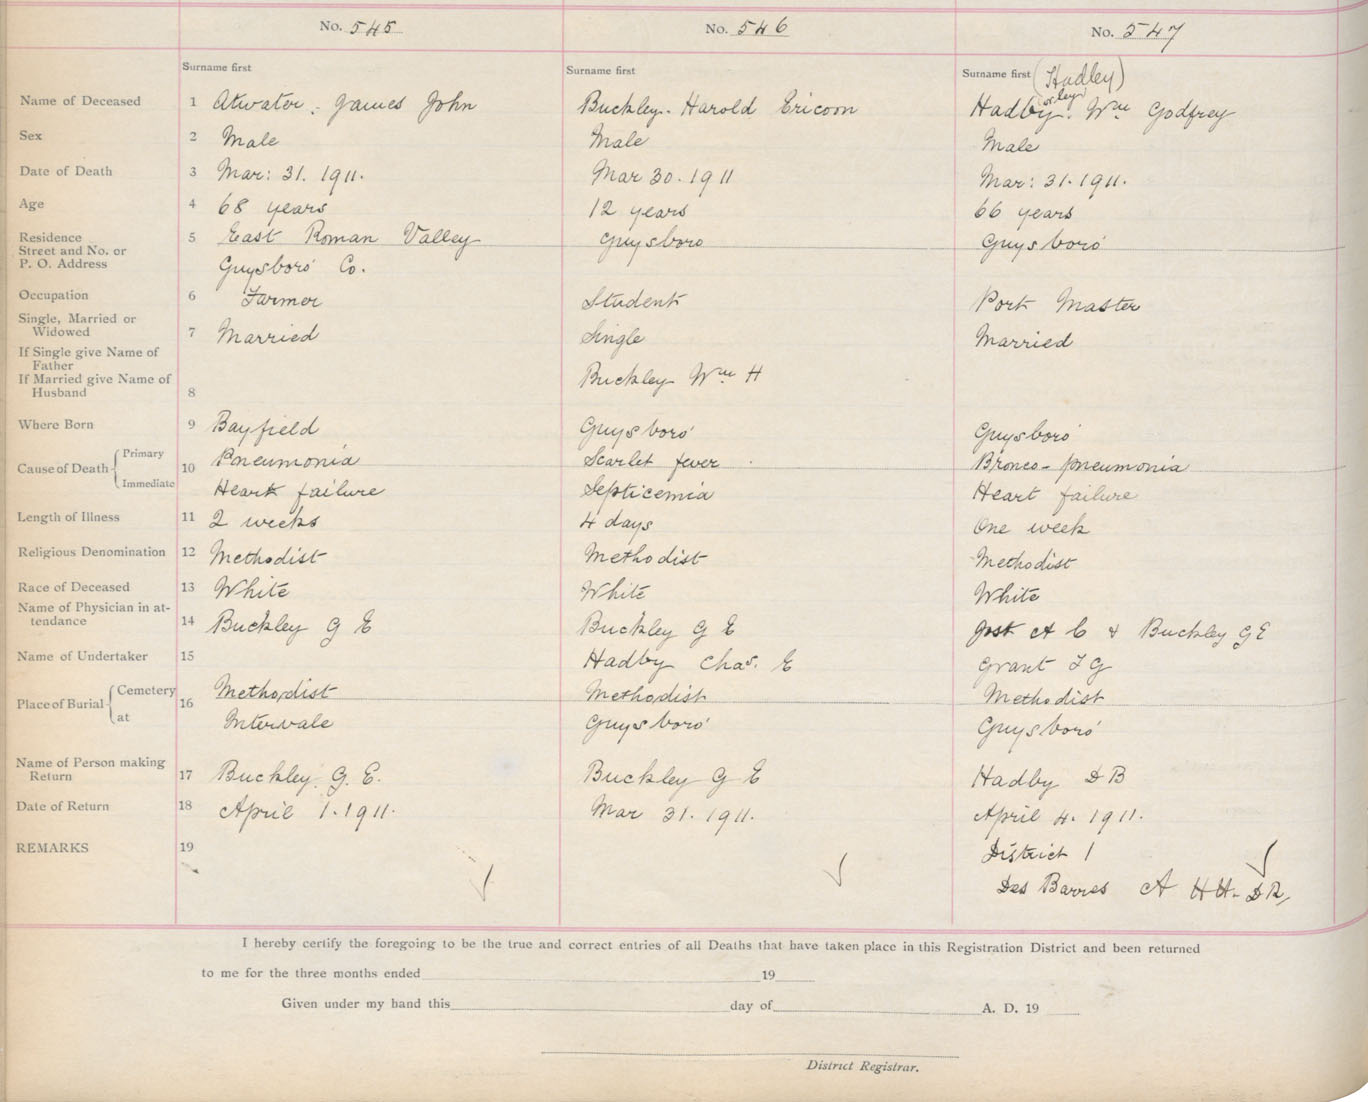 No. 545 No. 546 No. 547
Surname first Surname first Surname first (Hadley)
Name of Deceased 1 Atwater. James John Buckley. Harold Ericson Hadby or ley. Wm Godfrey
Sex 2 Male Male Male
Date of Death 3 Mar: 31. 1911. Mar 30. 1911 Mar: 31. 1911.
Age 4 68 years 12 years 66 years
Residence Street and No. or P. O. Address 5 East Roman Valley Guysboro Guysboro'
Guysboro' Co.
Occupation 6 Farmer Student Port Master
Single, Married or Widowed 7 Married Single Married
If Single give Name of Father
If Married give Name of Husband 8 Buckley Wm H
Where Born 9 Bayfield Guysboro' Guysboro'
Cause of Death Primary 10 Pneumonia Scarlet fever Bronco-pneumonia
Immediate Heart failure Septicemia Heart failure
Length of Illness 11 2 weeks 4 days One week
Religious Denomination 12 Methodist Methodist Methodist
Race of Deceased 13 White White White
Name of Physician in attendance 14 Buckley G E Buckley G E Jost A C & Buckley G E
Name of Undertaker 15 Hadby Chas. E Grant F G
Place of Burial Cemetery 16 Methodist Methodist Methodist
at Intervale Guysboro' Guysboro'
Name of Person making Return 17 Buckley. G. E. Buckley G E Hadby D B
Date of Return 18 April 1. 1911. Mar 31. 1911. April 4. 1911.
REMARKS 19 District 1
Des Barres A H H- D R,
I hereby certify the foregoing to be the true and correct entries of all Deaths that have taken place in this Registration District and been returned
to me for the three months ended 19
Given under my band this day of A. D. 19
District Registrar.